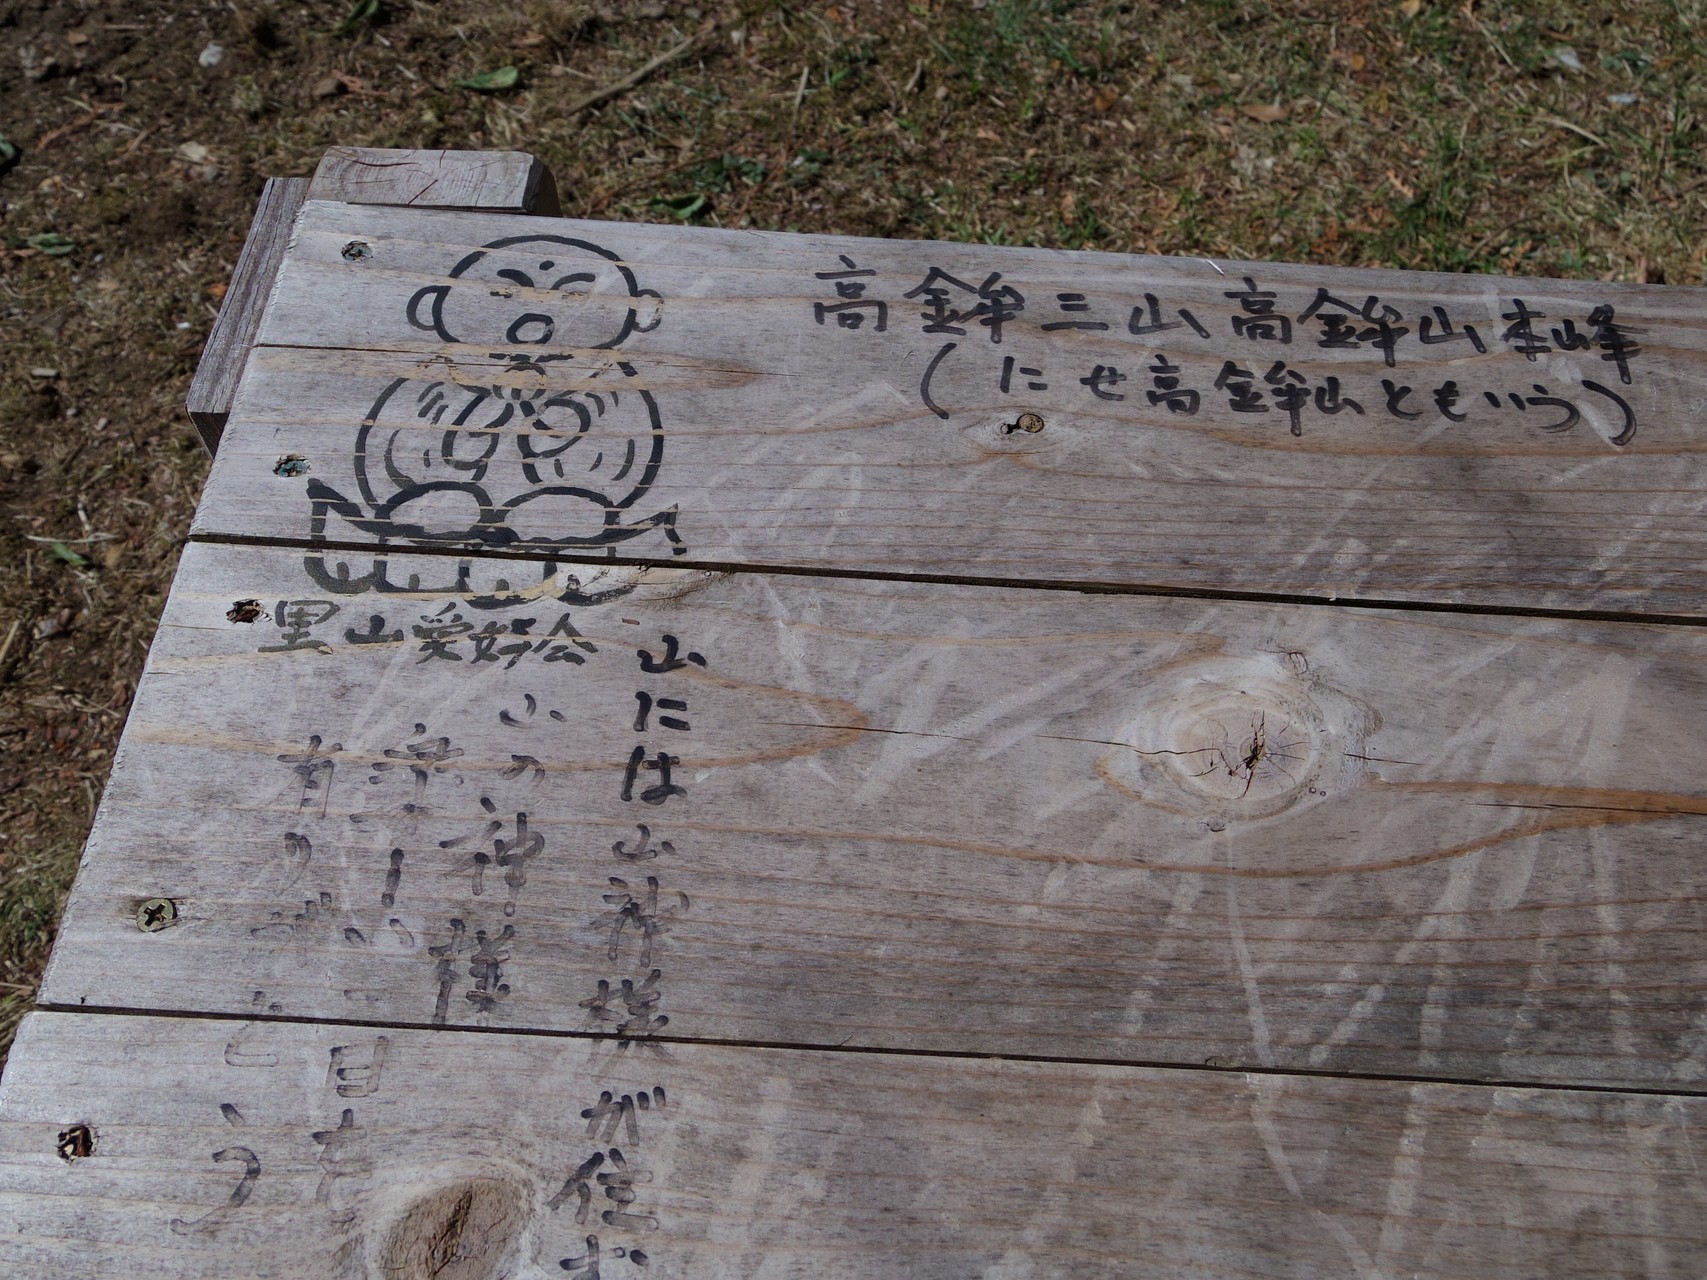 高鉾三山高鉾山本峰
(にせ高鉾山ともいう)
里山愛好会
山には山神様が住む
山の神様
楽しい一日を
有り難とう